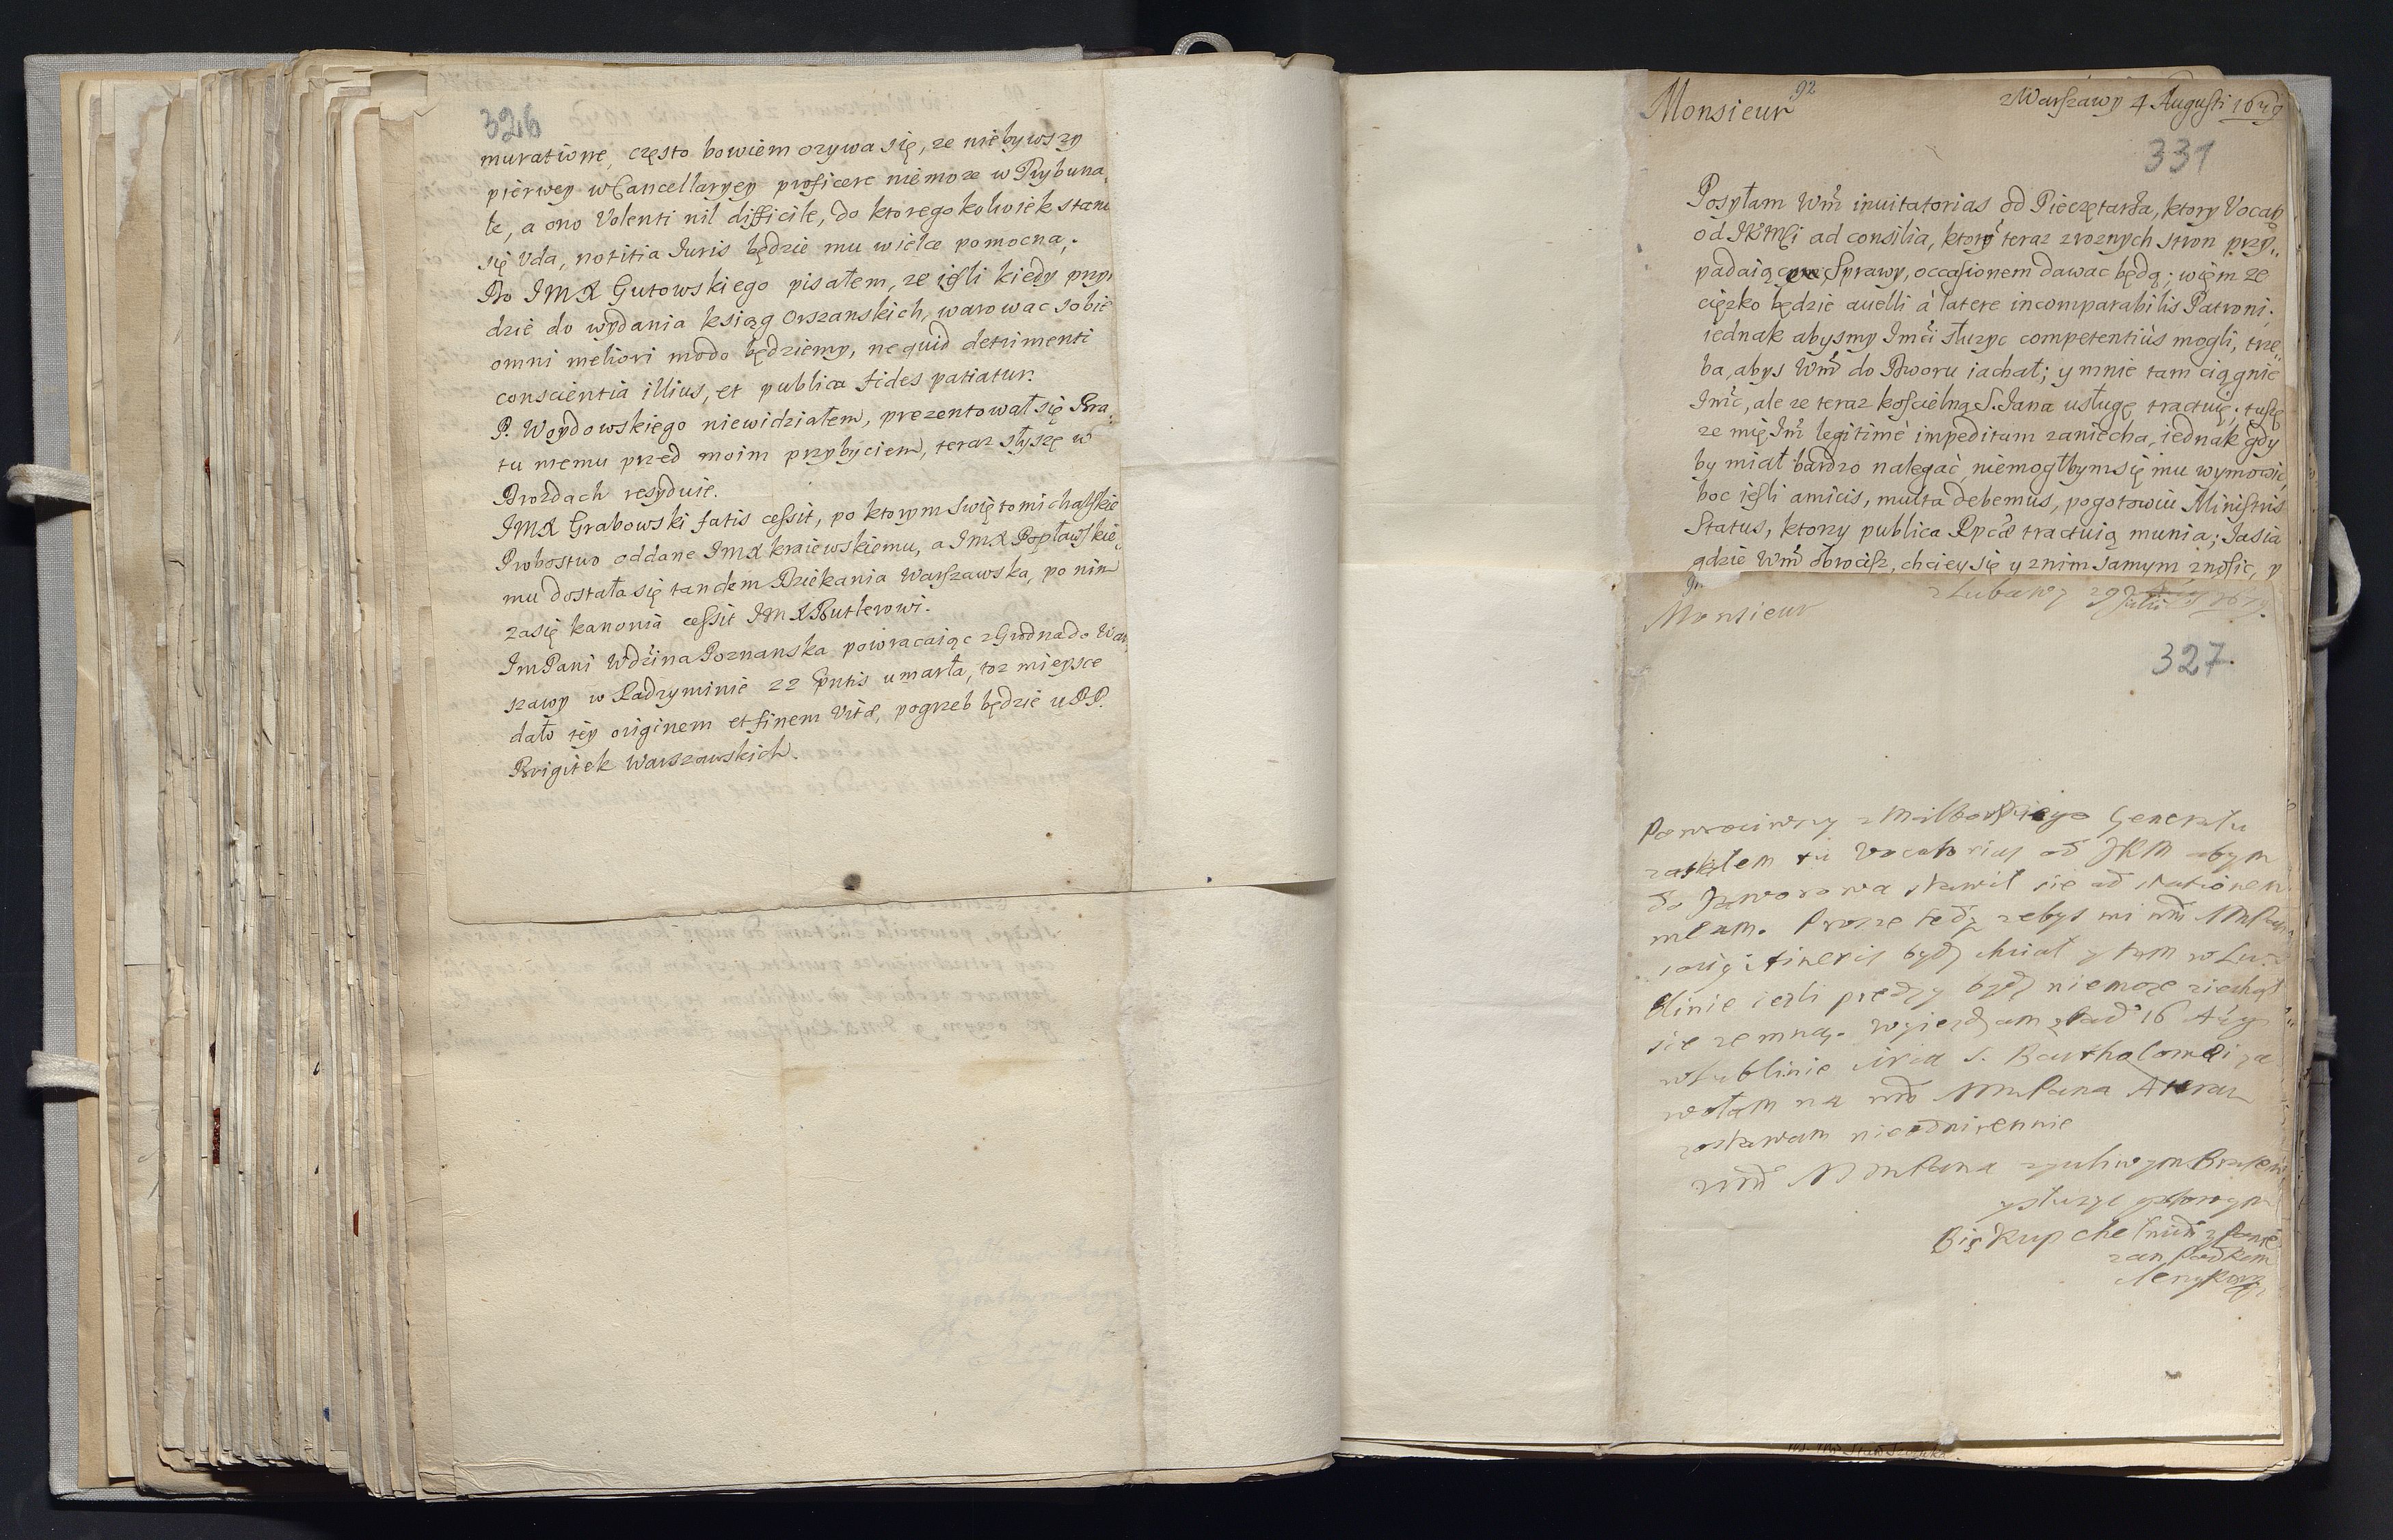 326
muratione, często bowiem ozywa się, ze niebywszy
pierwey w Cancellaryey proficere niemoze w Trybuna,
le, a ono Volenti nil difficile, do ktorego kolwiek stanu
się Uda, notitia Iuris będzie mu wielce pomocną.
Do JMX Gutowskiego pisałem, ze iesli kiedy przyi
dzie do wydania ksiąg Orszanskich, warowac sobie
omni meliori modo będziemy, ne quid detrimenti
conscientia illius, et publica fides patiatur.
P. Woydowskiego niewidziałem, prezentował się Bra,
tu memu przed moim przybyciem, teraz słyszę w
Drozdach resyduie.
JMX Grabowski fatis cessit, po ktorym Swiętomichalskie
Probostwo oddane JMX kraiewskiemu, a JMX Popławskie,
mu dostała się tandem Dziekania Warszawska, po nim
zasię kanonia cessit JMX Butlerowi.
Im Pani Wdzina Poznanska powracaiąc z Grodna do War,
szawy w Radzyminie 22 pntis umarła, toz mieysce
dało iey originem et finem Vitæ, pogrzeb będzie u PP.
Brigitek Warszawskich.
Monsieur
92
z Warszawy 4 Augusti 1679
331
Posyłam Wm inuitatorias od Pieczętarza, ktory Vocat
od JKMci ad consilia, ktory teraz z roznych stron przy,,
padaiące Sprawy, occasionem dawac będą; wiem ze
cięzko będzie auelli à latere incomparabilis Patroni.
iednak abysmy Imci słuzyc competentiùs mogli, trze,,
ba, abys Wm do Dworu iachał; y mnie tam ciągnie
Imc, ale ze teraz koscielną S. Jana usługę tractuię, tuszę
ze mię Im legitimè impeditum zaniecha, iednak gdy
by miał bardzo nalegać, niemogłbym się mu wymowic,
boc iesli amicis, multa debemus, pogotowiu Ministris
Status, ktorzy publica Rpcæ tractuią munia; Jasia
gdzie Wm obrocisz, chciey się y z nim samym znosic, y
Monsieur
z Lubawy 29 Julii
327.
Powrociwszy z Malborskiego Generału
zastałem tu Vocatorias od JKM abym
do Jaworowa stawił sie ad stationem
meam. Prosze tedy zebys mi wm MmPan
itineris bydz chciał y tam w Lu
blinie iezli predzy bydz niemoze ziechał
sie zemną. wyiezdzam ztad 16 Aug
w Lublinie circa S. Bartholomæi za
wołam na wm MmPana A teraz
zostawam nieodmiennie
wm MmPana zyczliwym Bratem
y słuzyc gotowym
Biskup chełmin